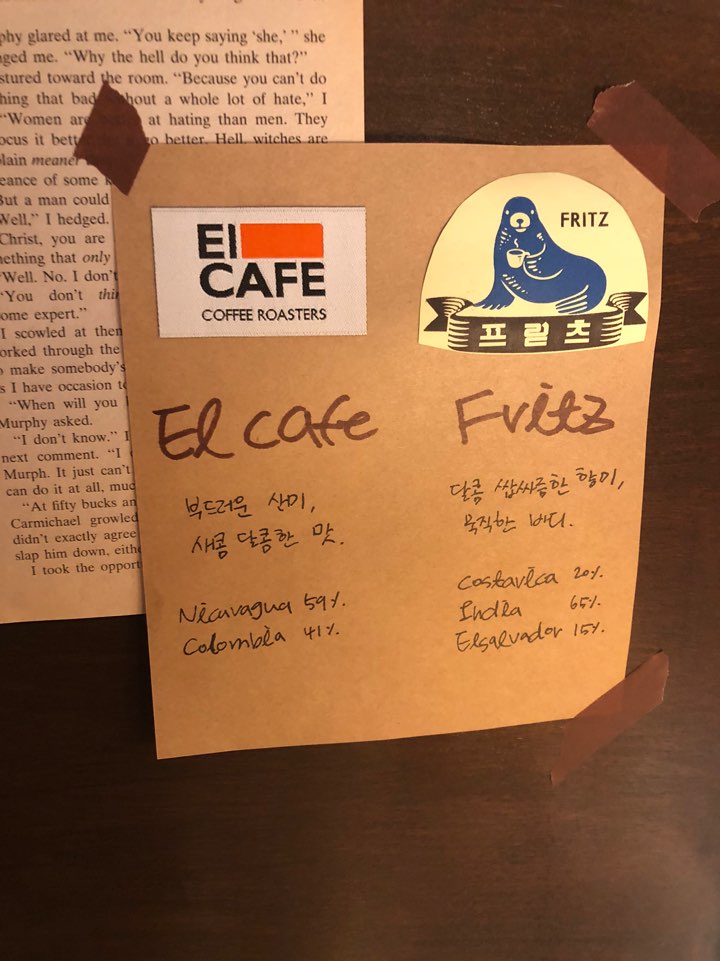 phy glared at me. “You keep saying ‘she,’ ” she
nged me. “Why the hell do you think that?”
stured toward the room. “Because you can’t do
hing that bad without a whole lot of hate,” I
“Women are at hating than men. They
ocus it better go better. Hell, witches are
plain meaner
eance of some
But a man could
Well,” I hedged.
Christ, you are
nething that only
“Well. No. I don’t
“You don’t
ome expert.”
I scowled at then
orked through the
o make somebody’s
s I have occasion to
“When will you
Murphy asked.
“I don’t know.” I
next comment. “I
Murph. It just can’t
can do it at all, muc
“At fifty bucks an
Carmichael growled
didn’t exactly agree
slap him down, eithe
I took the opport
El
CAFE
COFFEE ROASTERS
FRITZ
프릳츠
El cafe
Fritz
부드러운 산미,
새콤 달콤한 맛.
Nicuvagua 59%.
Colombia 41%.
달콤 쌉싸름한 향미,
묵직한 바디.
Costavica 20%.
India 65%.
Elsalvador 15%.